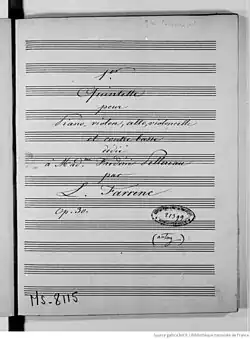 1er
Quintette
pour
Piano, violon, alto, violoncelle
et contre basse
dédié
à Mad.me
par
L. Farrenc
Op. 30.
(autog.)
MS-8115
Source gallica.bnf.fr / Bibliothèque nationale de France